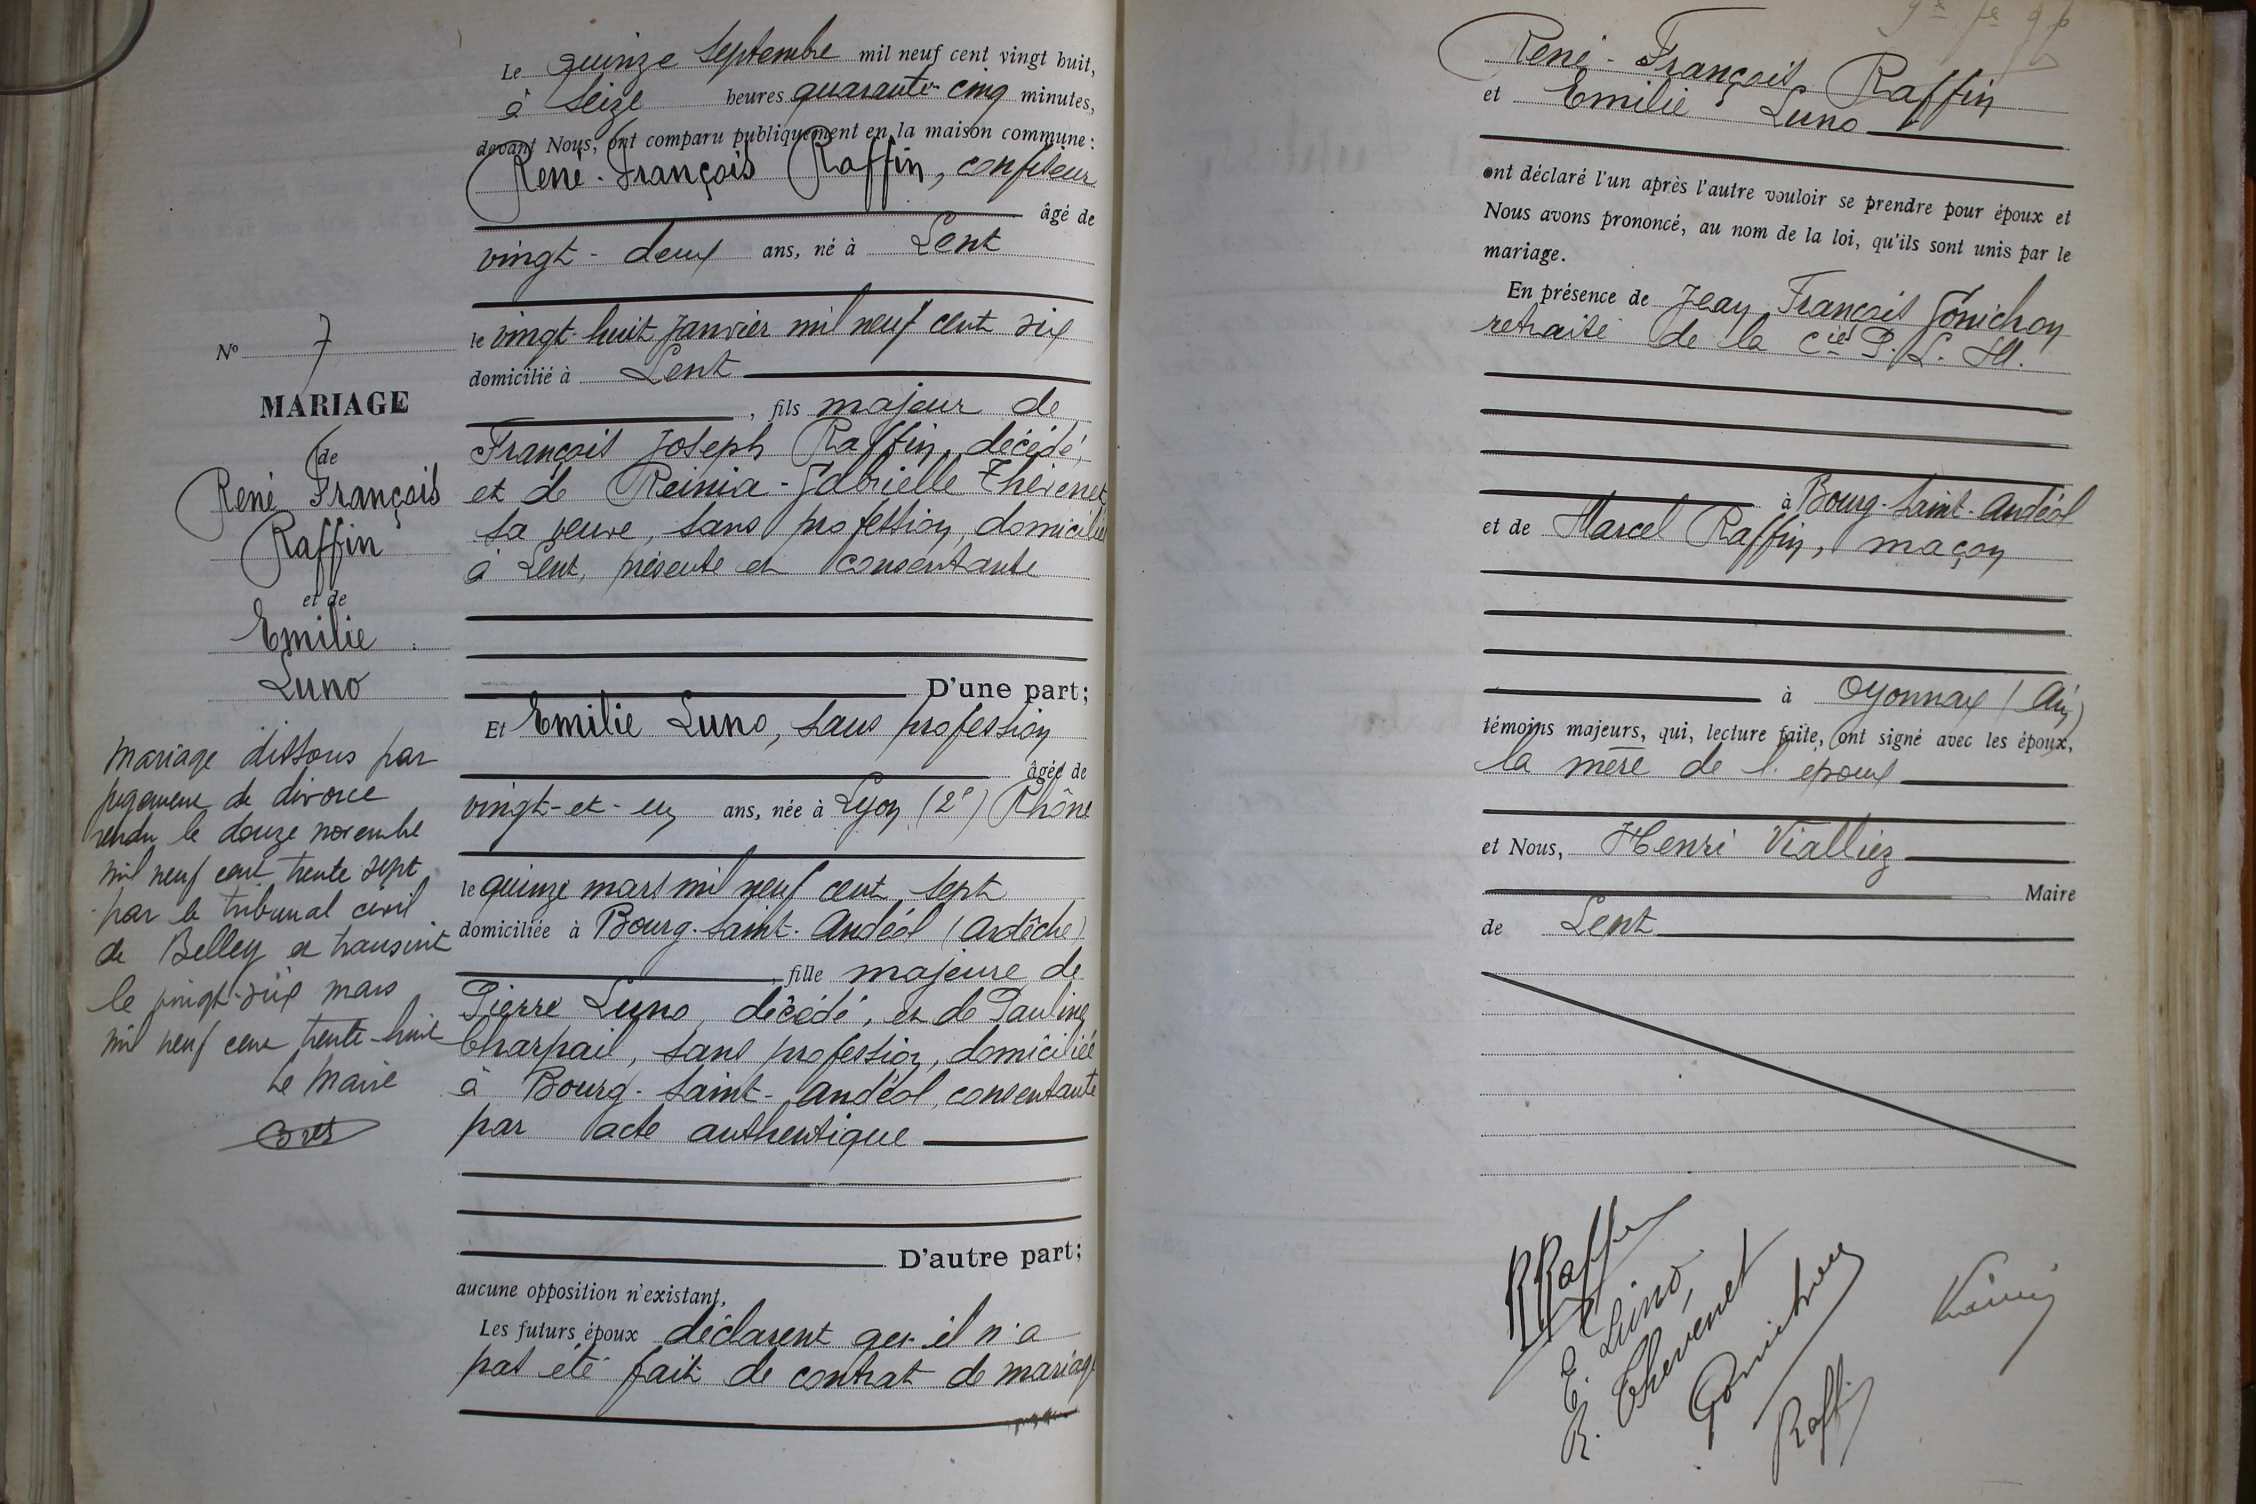 N° 7
MARIAGE
de
René François
Raffin
et de
Emilie
Luno
Mariage dissous par
jugement de divorce
rendu le douze novembre
mil neuf cent trente sept
par le tribunal civil
de Belley et transcrit
le vingt-six mars
mil neuf cent trente-huit
Le Maire
Le quinze Septembre mil neuf cent vingt huit,
à seize heures quarante-cinq minutes,
devant Nous, ont comparu publiquement en la maison commune :
René-François Raffin, confiseur
âgé de
vingt-deux ans, né à Lent
le vingt-huit janvier mil neuf cent six
domicilié à Lent
, fils majeur de
François Joseph Raffin, décédé,
et de Reinia-Gabrielle Thévenet
sa veuve, sans profession, domiciliée
à Lent, présente et consentante
D'une part;
Et Emilie Luno, sans profession
âgée de
vingt-et-un ans, née à Lyon (2e) Rhône
le quinze mars mil neuf cent sept
domiciliée à Bourg-saint-Andéol (Ardèche)
fille majeure de
Pierre Luno, décédé, et de Pauline
Charpail, sans profession, domiciliée
à Bourg-saint-Andéol, consentante
par acte authentique
D'autre part;
aucune opposition n'existant,
Les futurs époux déclarent qu'il n'a
pas été fait de contrat de mariage
René-François Raffin
et Emilie Luno
ont déclaré l'un après l'autre vouloir se prendre pour époux et
Nous avons prononcé, au nom de la loi, qu'ils sont unis par le
mariage.
En présence de Jean François Gonichon
retraité de la Cie P. L. M.
à Bourg-saint-Andéol
et de Marcel Raffin, maçon
à Oyonnax (Ain)
témoins majeurs, qui, lecture faite, ont signé avec les époux,
la mère de l'époux
et Nous, Henri Vialliez
Maire
de Lent
R Raffin
E. Luino,
R. Thevenet
Gonichon
Raffin